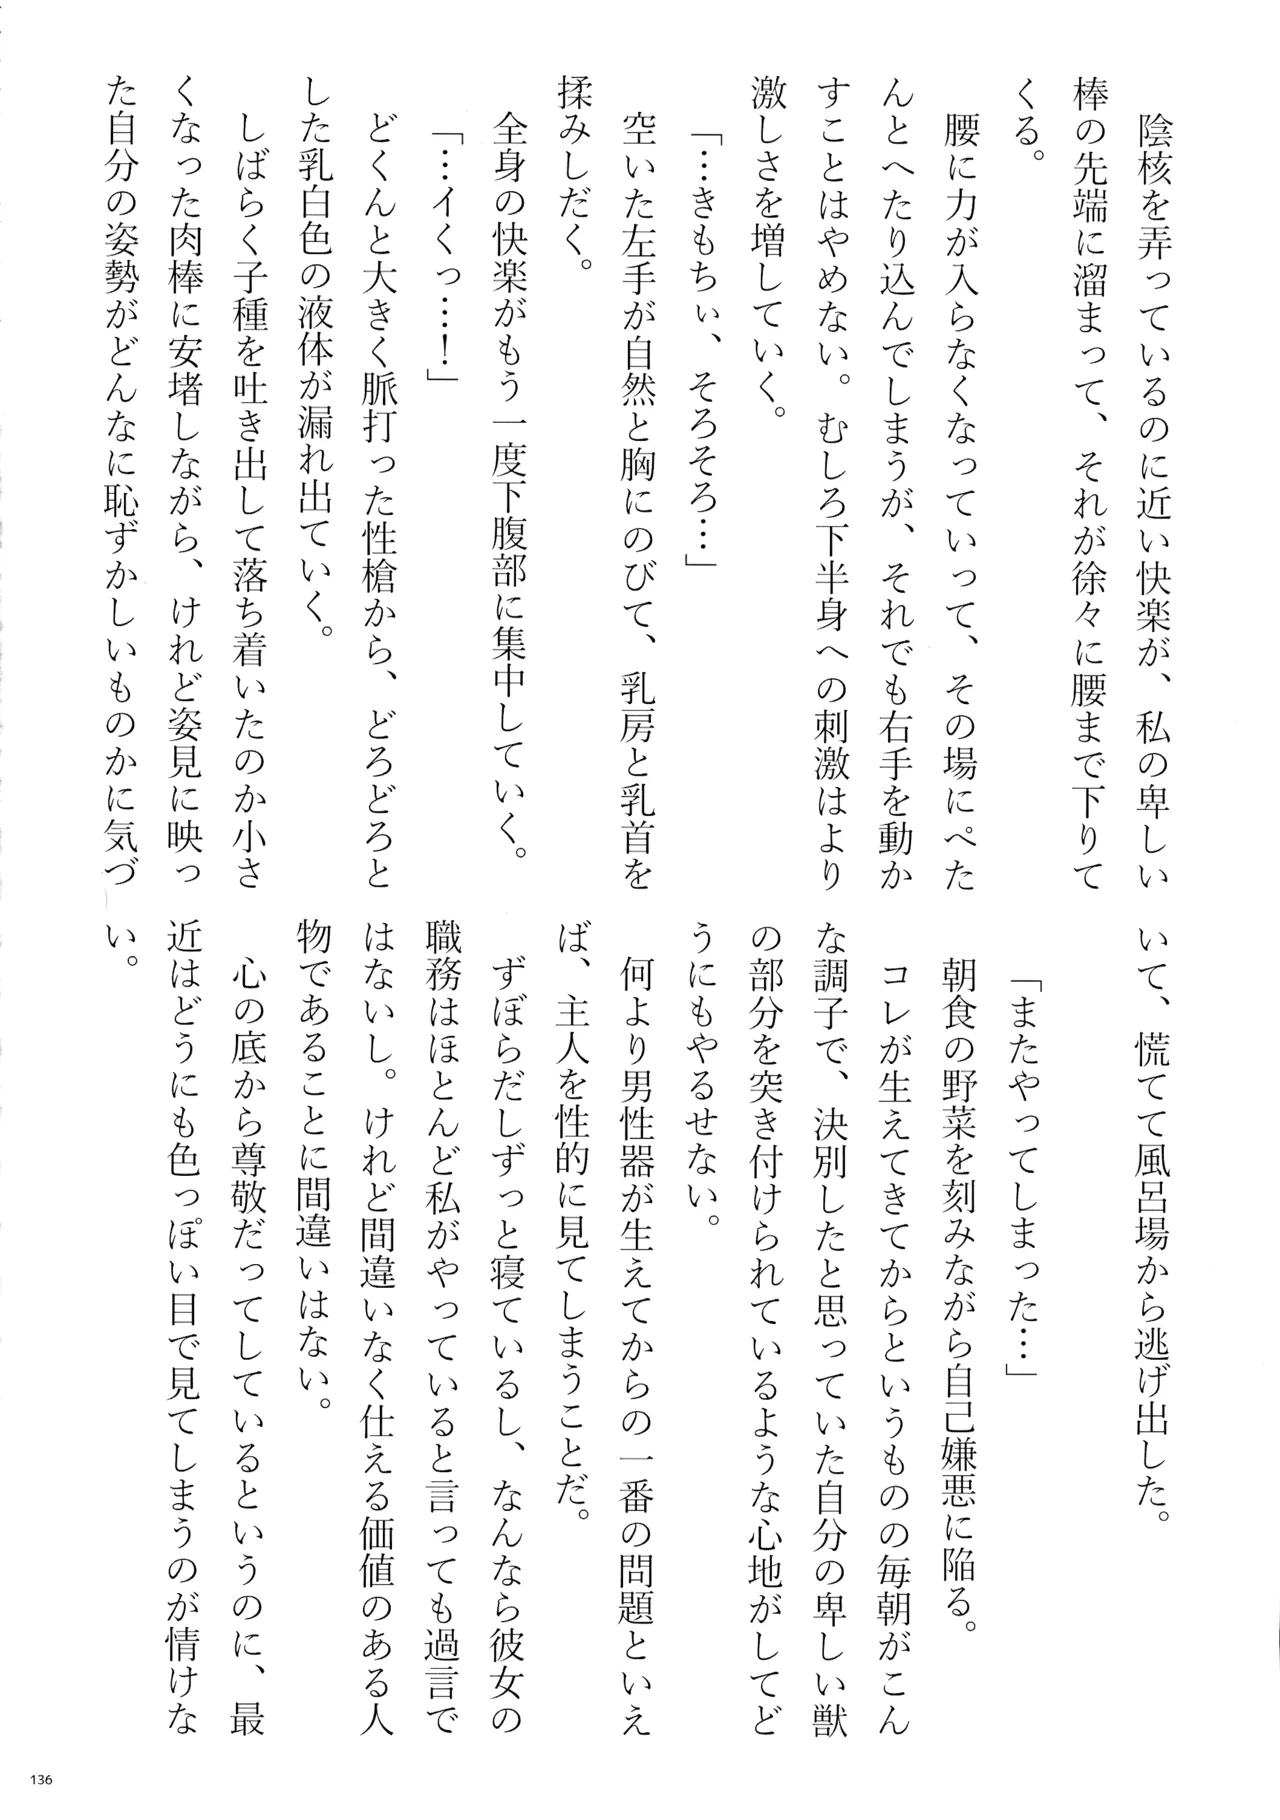 陰核を弄っているのに近い快楽が、私の卑しい
棒の先端に溜まって、それが徐々に腰まで下りて
くる。
腰に力が入らなくなっていって、その場にぺた
んとへたり込んでしまうが、それでも右手を動か
すことはやめない。むしろ下半身への刺激はより
激しさを増していく。
「…きもちぃ、そろそろ…」
空いた左手が自然と胸にのびて、乳房と乳首を
揉みしだく。
全身の快楽がもう一度下腹部に集中していく。
「…イくっ…!」
どくんと大きく脈打った性槍から、どろどろと
した乳白色の液体が漏れ出ていく。
しばらく子種を吐き出して落ち着いたのか小さ
くなった肉棒に安堵しながら、けれど姿見に映っ
た自分の姿勢がどんなに恥ずかしいものかに気づ
いて、慌てて風呂場から逃げ出した。
「またやってしまった…」
朝食の野菜を刻みながら自己嫌悪に陥る。
コレが生えてきてからというものの毎朝がこん
な調子で、決別したと思っていた自分の卑しい獣
の部分を突き付けられているような心地がしてど
うにもやるせない。
何より男性器が生えてからの一番の問題といえ
ば、主人を性的に見てしまうことだ。
ずぼらだしずっと寝ているし、なんなら彼女の
職務はほとんど私がやっていると言っても過言で
はないし。けれど間違いなく仕える価値のある人
物であることに間違いはない。
心の底から尊敬だってしているというのに、最
近はどうにも色っぽい目で見てしまうのが情けな
い。
136